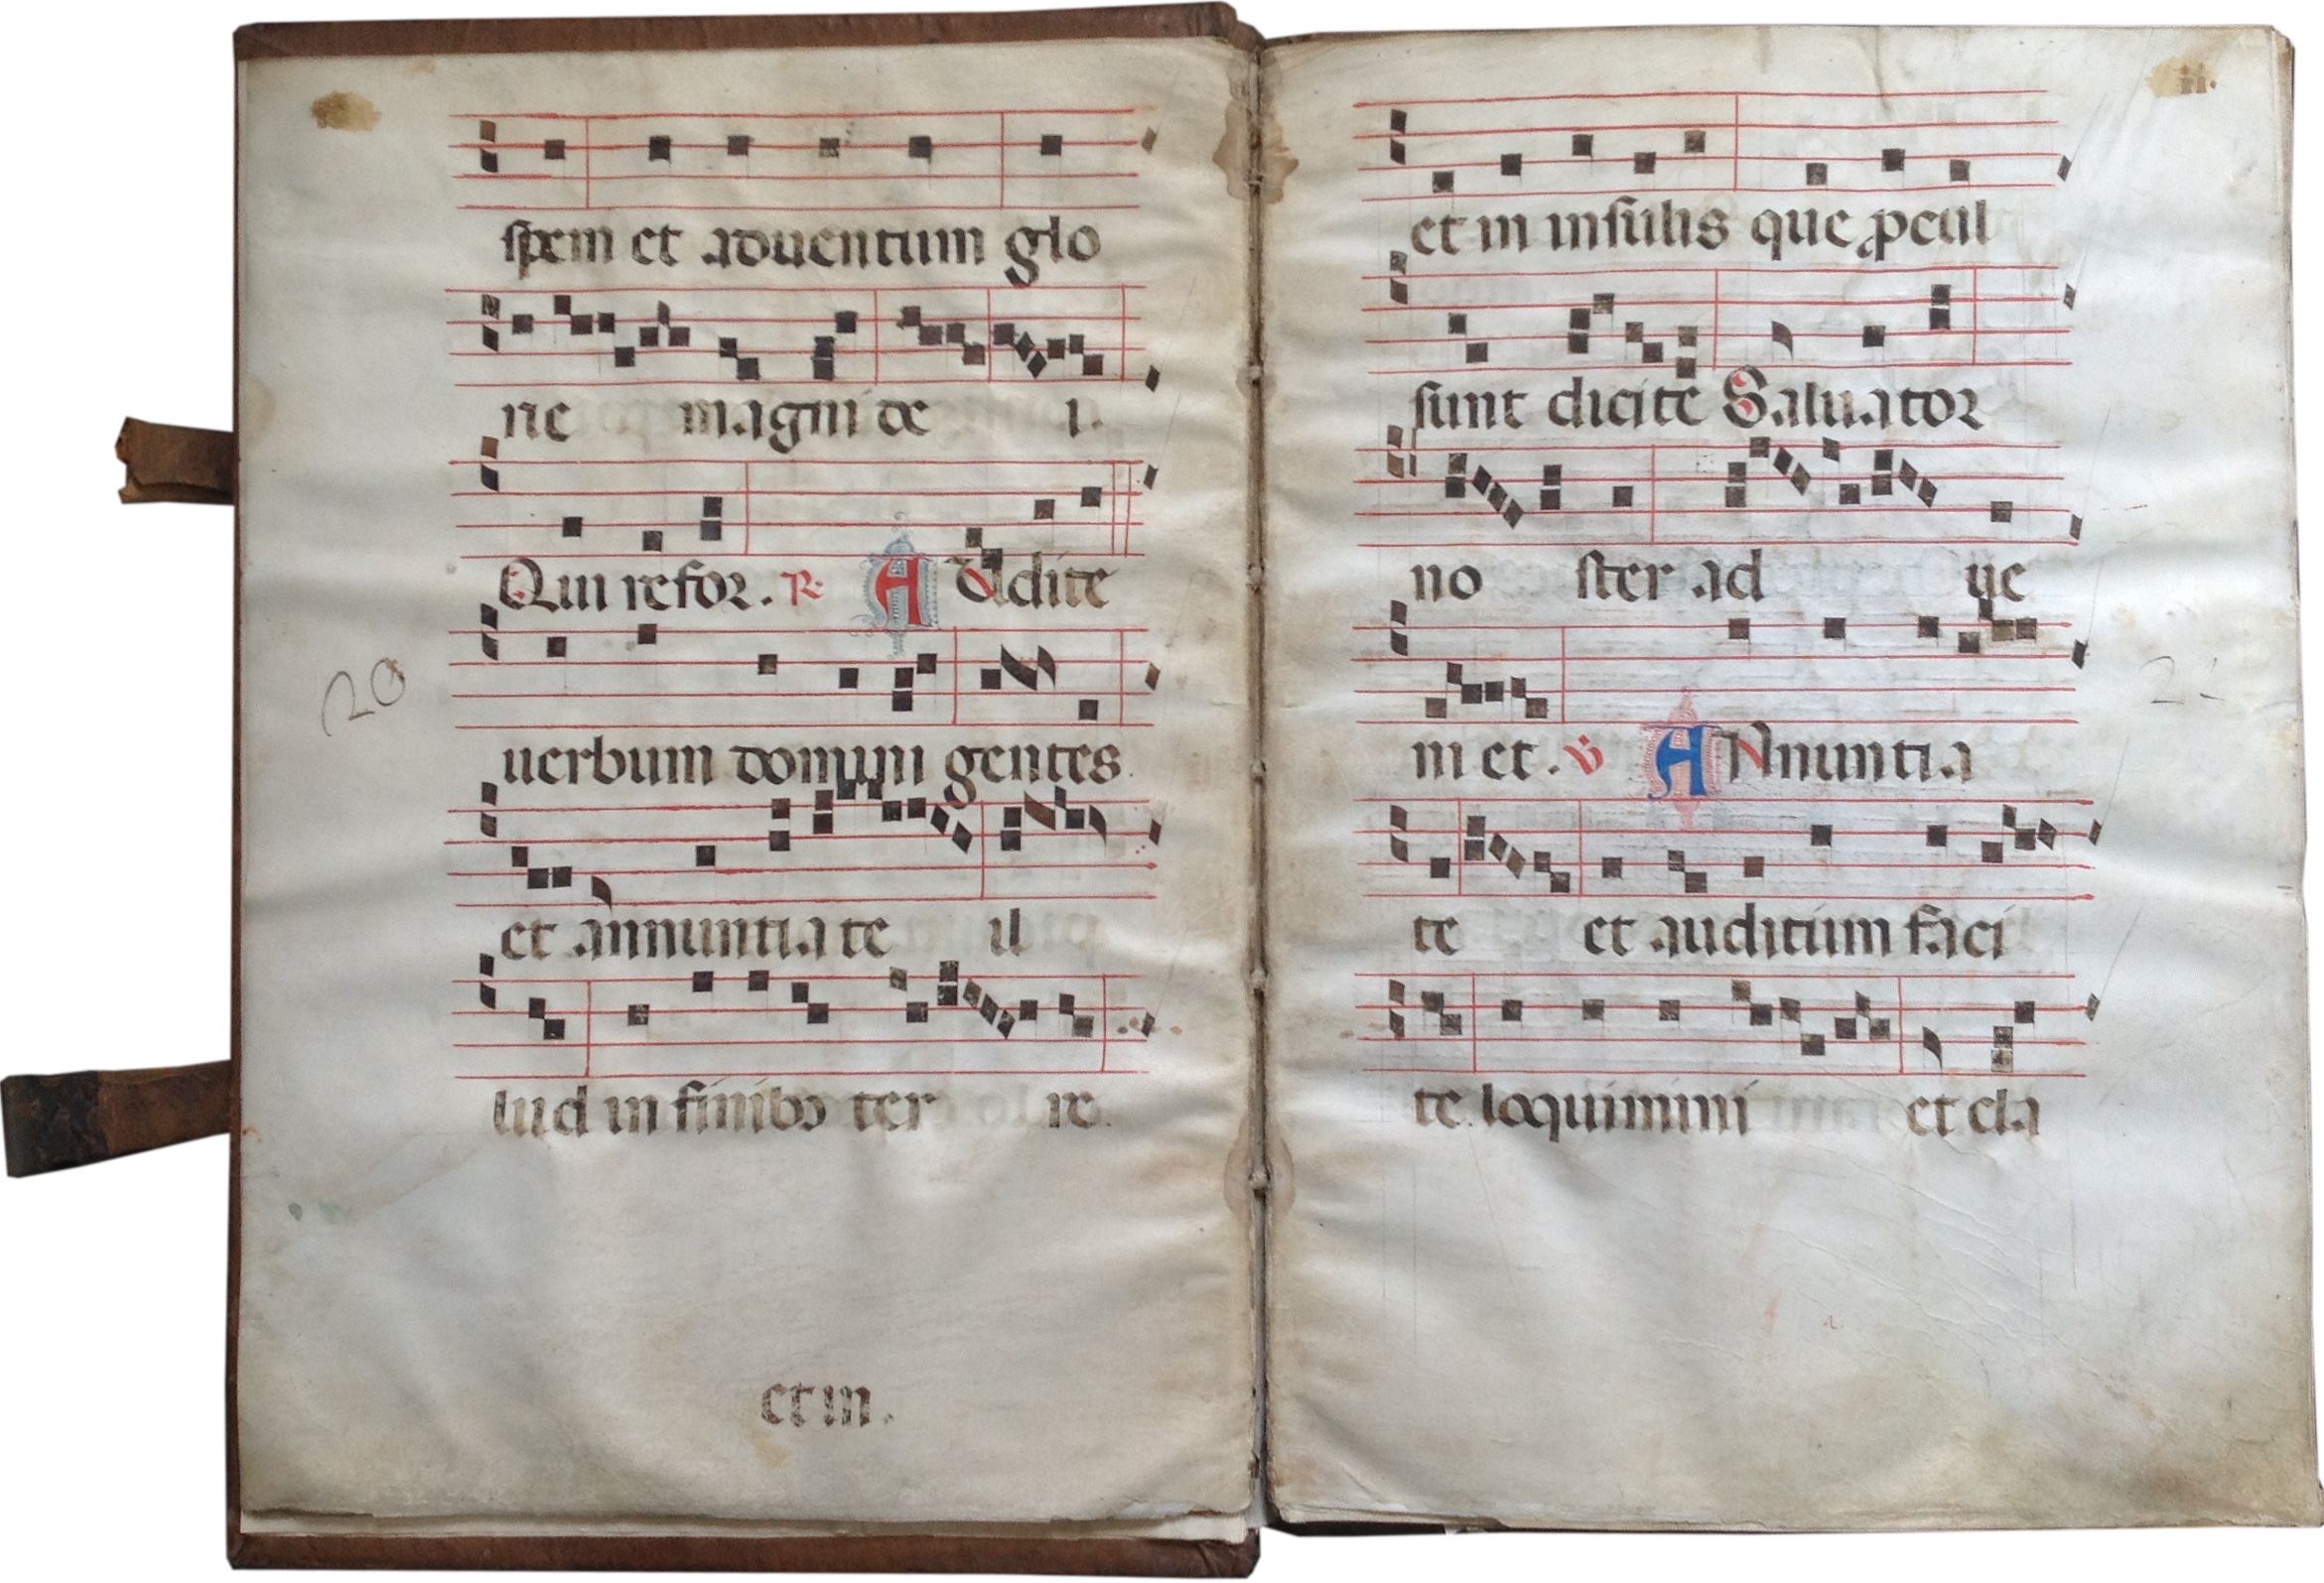 spem et aduentum glo
rie magni de i.
Qui refor. R. A Udite
uerbum domini gentes
et annuntia te il
lud in finibꝰ ter re.
20
et in.
ii.
et in insulis que ꝓcul
sunt dicite Saluator
no ster ad ue
ni et. V A Nnuntia
te et auditum faci
te. loquimini et cla